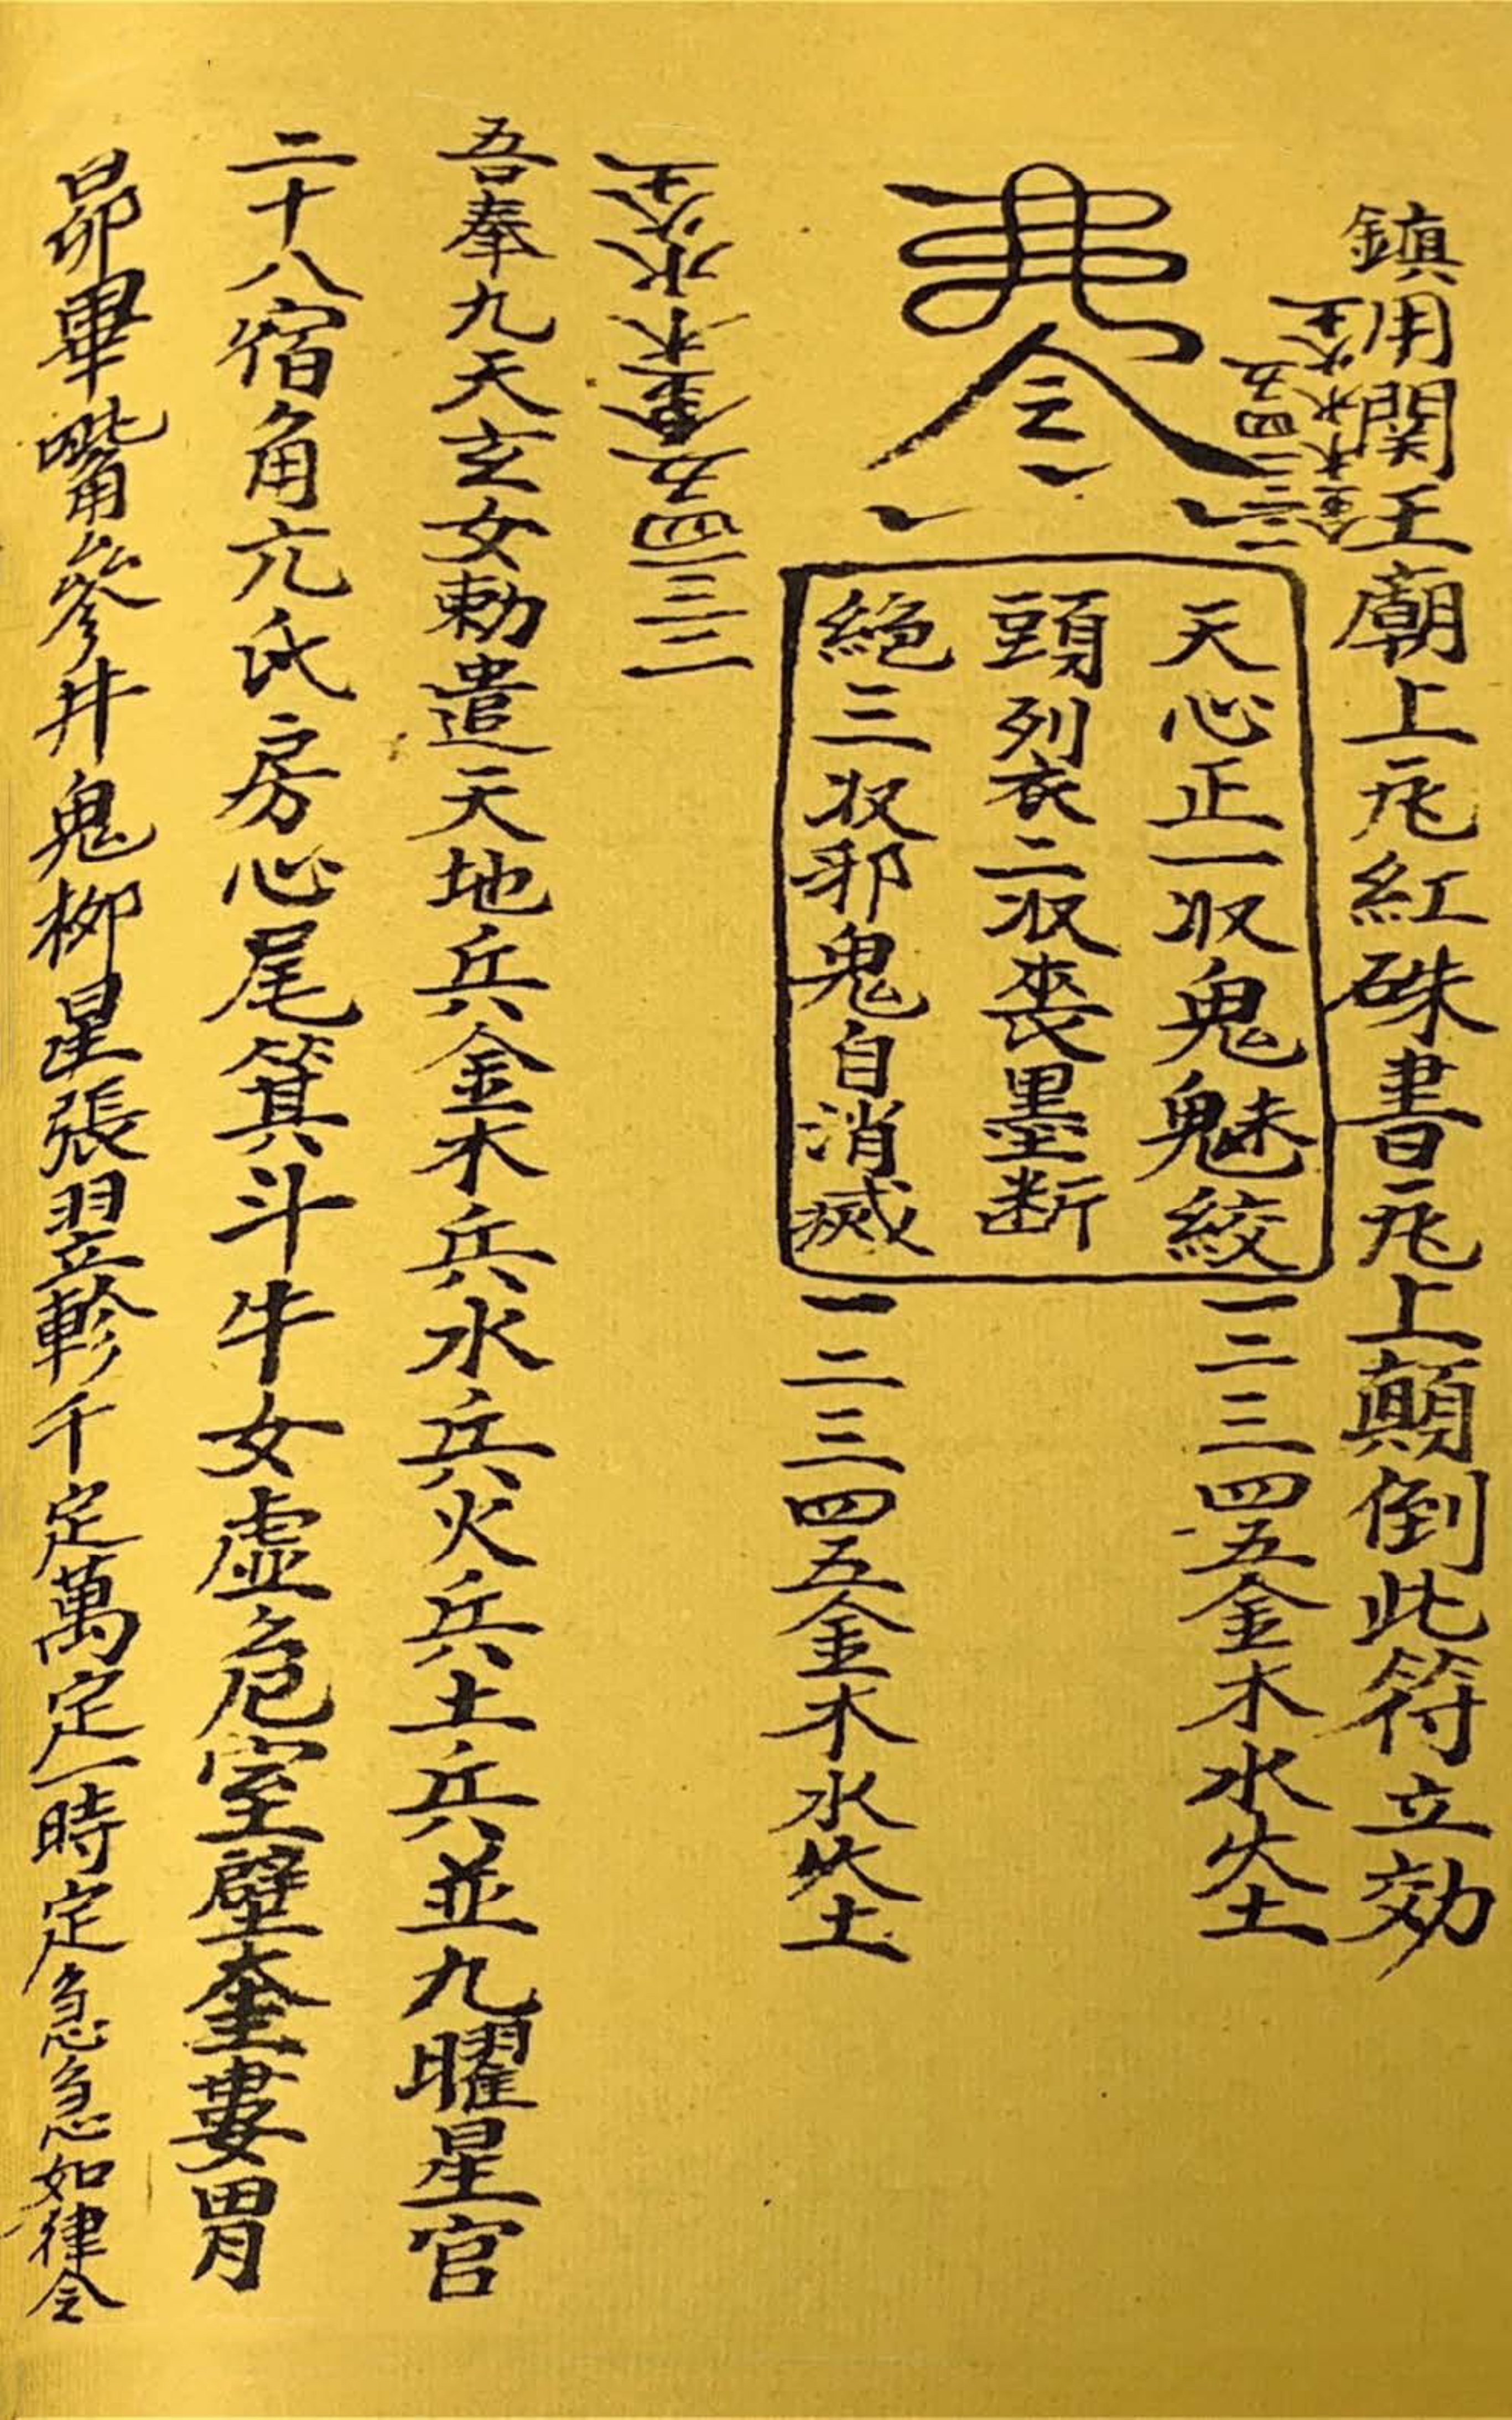 鎮用関王廟上瓦紅硃書瓦上顛倒此符立効
一二三四五
金木水火土
令
天心正一収鬼魅絞
頭列衣二収喪墨断
絶三収邪鬼自消滅
一二三四五金木水火土
一二三四五金木水火土
一二三四五金木水火土
吾奉九天玄女勅遣天地兵金木兵水兵火兵土兵並九曜星官
二十八宿角亢氐房心尾箕斗牛女虚危室壁奎婁胃
昴畢嘴參井鬼柳星張翌軫千定萬定一時定急急如律令